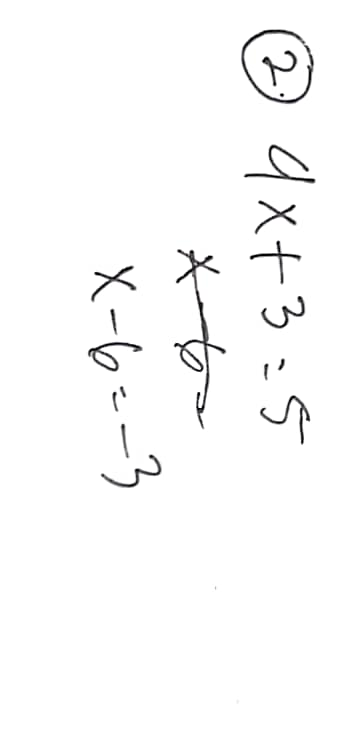 ② 4x+3=5
x-6=
x-6=-3